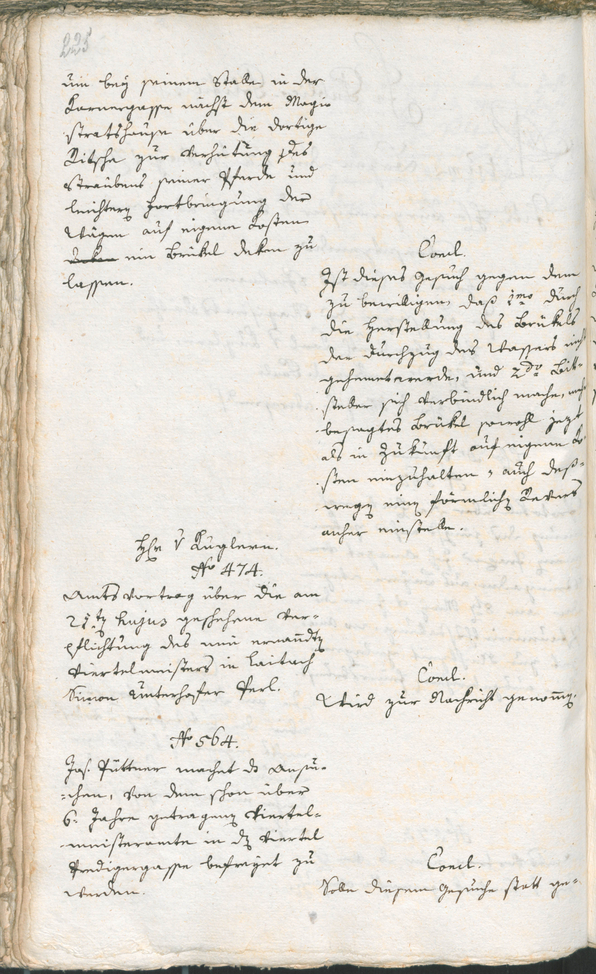 225
um bey seinem Stalle in der
Karnergasse nächst dem Magi-
stratshause über die dortige
Ritsche zur Verhütung des
Straubens seiner Pferde und
leichtern Fortbringung der
Wägen auf eigene Kosten
ein Brükel deken zu
lassen.
Concl.
Ist dieses Gesuch gegen dem
zu bewilligen, daß 1mo durch
die Herstellung des Brükels
der Durchzug des Wassers nicht
gehemt werde, und 2do Bitt-
steller sich verbindlich mache,
besagtes Brükel sowohl jezt
als in Zukunft auf eigene Ko-
sten einzuhalten, auch deß-
wegen einen förmlichen Revers
anher einstelle.
Hr v Kuglern.
No 474.
Amtsvortrag über die am
21ten hujus geschehene Ver-
pflichtung des neu ernannten
Viertelmeisters in Laitach
Simon Unterhofer Perl.
Concl.
Wird zur Nachricht genommen.
No 564.
Jos. Püttner machet das Ansu-
chen, von dem schon über
6. Jahre getragenen Viertel-
meisteramte in dem Viertel
Predigergasse befreyet zu
werden.
Concl.
Solle diesem Gesuche statt ge-